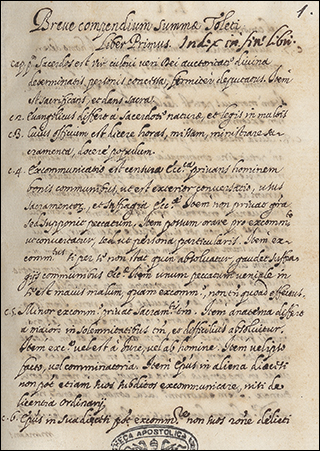 1.
Breve compendium summæ Toleti
Liber Primus. Index in fine libri
cap. p. Sacerdos est vir cultui veri Dei auctoritate divina
determinatis personis concessa, firmiter deputatus. Item
et Sacrificans, et dans sacra.
c. 2. Evangelicus differt a Sacerdote naturæ, et legis in multis
c. 3. Cuius officium est dicere horas, missam, ministrare sa-
cramenta, docere populum.
c. 4. Excommunicatio est censura privans hominem
bonis communibus, ut est exterior conversatio, usus
Sacramentor, et suffragia Item non privat gra
sed supponit peccatum. Item possum orare pro excomm
ut convertatur, seu ut persona particularis. Item ex-
comm per non stat quin absolvatur, gaudet suffra-
giis communibus Item unum peccatum veniale in
est maius malum, quam excomm, non en quoad effectus.
c. 5. Minor excomm. privat Sacram tm. Item anathema differt
a maiori in solemnitatibus tm, et difficilius absolvitur.
Item exc vel est a iure, vel ab homine. Item vel ipso
facto, vel comminatoria. Item Epus in aliena diœcesi
non pot etiam suos subditos excommunicare, nisi de
licentia ordinarij.
c. 6. Epus in sua diœcesi pot excomm non suos rone delicti